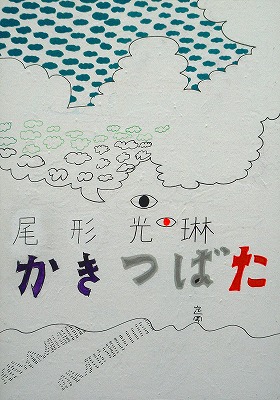 尾形光琳
かきつばた